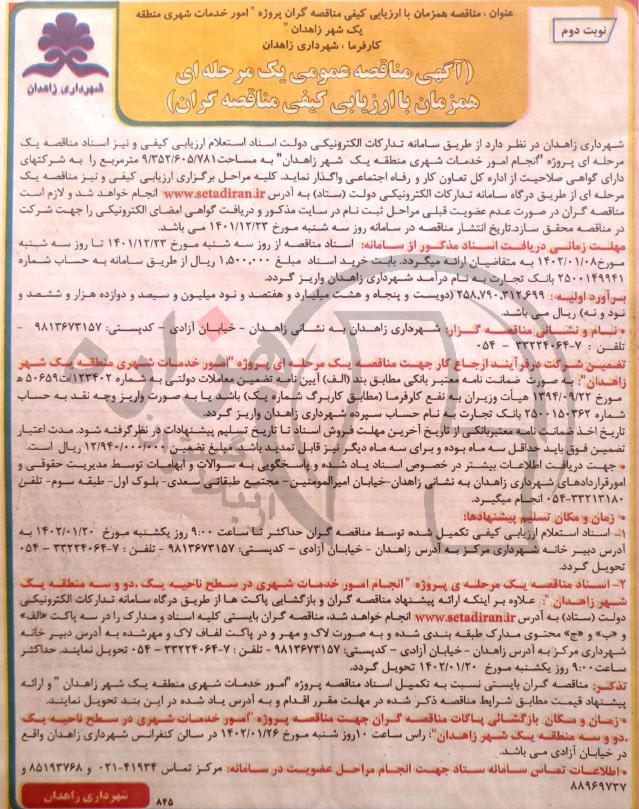 نوبت دوم
عنوان ، مناقصه همزمان با ارزیابی کیفی مناقصه گران پروژه " امور خدمات شهری منطقه
یک شهر زاهدان "
کارفرما ، شهرداری زاهدان
(آگهی مناقصه عمومی یک مرحله ای
همزمان با ارزیابی کیفی مناقصه گران)
شهرداری زاهدان
شهرداری زاهدان در نظر دارد از طریق سامانه تدارکات الکترونیکی دولت اسناد استعلام ارزیابی کیفی و نیز اسناد مناقصه یک
مرحله ای پروژه "انجام امور خدمات شهری منطقه یک شهر زاهدان" به مساحت ۹/۳۵۲/۶۰۵/۷۸۱ مترمربع را به شرکتهای
دارای گواهی صلاحیت از اداره کل تعاون کار و رفاه اجتماعی واگذار نماید. کلیه مراحل برگزاری ارزیابی کیفی و نیز مناقصه یک
مرحله ای از طریق درگاه سامانه تدارکات الکترونیکی دولت (ستاد) به آدرس www.setadiran.ir انجام خواهد شد و لازم است
مناقصه گران در صورت عدم عضویت قبلی مراحل ثبت نام در سایت مذکور و دریافت گواهی امضای الکترونیکی را جهت شرکت
در مناقصه محقق سازد.تاریخ انتشار مناقصه در سامانه روز سه شنبه مورخ ۱۴۰۱/۱۲/۲۳ می باشد.
مهلت زمانی دریافت اسناد مذکور از سامانه: اسناد مناقصه از روز سه شنبه مورخ ۱۴۰۱/۱۲/۲۳ تا روز سه شنبه
مورخ ۱۴۰۲/۰۱/۰۸ به متقاضیان ارائه میگردد. بابت خرید اسناد مبلغ ۱,۵۰۰,۰۰۰ ریال از طریق سامانه به حساب شماره
۲۵۰۰۱۴۹۹۴۱ بانک تجارت به نام درآمد شهرداری زاهدان واریز گردد.
برآورد اولیه: : ۲۵۸,۷۹۰,۳۱۲,۶۹۹ (دویست و پنجاه و هشت میلیارد و هفتصد و نود میلیون و سیصد و دوازده هزار و ششصد و
نود و نه) ریال می باشد.
• نام و نشانی مناقصه گزار: شهرداری زاهدان به نشانی زاهدان - خیابان آزادی - کدپستی: ۹۸۱۳۶۷۳۱۵۷ -
تلفن : ۷-۳۳۲۲۴۰۶۴ - ۰۵۴
تضمین شرکت درفرآیند ارجاع کار جهت مناقصه یک مرحله ای پروژه "امور خدمات شهری منطقه یک شهر
زاهدان": به صورت ضمانت نامه معتبر بانکی مطابق بند (الف) آیین نامه تضمین معاملات دولتی به شماره ۱۲۳۴۰۲/ت۵۰۶۵۹ ه
مورخ ۱۳۹۴/۰۹/۲۲ هیأت وزیران به نفع کارفرما (مطابق کاربرگ شماره یک) باشد یا به صورت واریز وجه نقد به حساب
شماره ۲۵۰۰۱۵۰۳۶۲ بانک تجارت به نام حساب سپرده شهرداری زاهدان واریز گردد.
تاریخ اخذ ضمانت نامه معتبربانکی از تاریخ آخرین مهلت فروش اسناد تا تاریخ تسلیم پیشنهادات در نظرگرفته شود. مدت اعتبار
تضمین فوق باید حداقل سه ماه بوده و برای سه ماه دیگر نیز قابل تمدید باشد. مبلغ تضمین ۱۲/۹۴۰/۰۰۰/۰۰۰ ریال است.
• جهت دریافت اطلاعات بیشتر در خصوص اسناد یاد شده و پاسخگویی به سوالات و ابهامات توسط مدیریت حقوقی و
امورقراردادهای شهرداری زاهدان به نشانی زاهدان-خیابان امیرالمومنین- مجتمع طبقاتی سعدی- بلوک اول- طبقه سوم- تلفن
۳۳۲۱۳۱۸۰-۰۵۴ انجام میگیرد.
• زمان و مکان تسلیم پیشنهادها:
۱- اسناد استعلام ارزیابی کیفی تکمیل شده توسط مناقصه گران حداکثر تا ساعت ۹:۰۰ روز یکشنبه مورخ ۱۴۰۲/۰۱/۲۰ به
آدرس دبیر خانه شهرداری مرکز به آدرس زاهدان - خیابان آزادی - کدپستی: ۹۸۱۳۶۷۳۱۵۷ - تلفن : ۷-۳۳۲۲۴۰۶۴ - ۰۵۴
تحویل گردد.
۲- اسناد مناقصه یک مرحله ی پروژه " انجام امور خدمات شهری در سطح ناحیه یک ،دو و سه منطقه یک
شهر زاهدان ": علاوه بر اینکه ارائه پیشنهاد مناقصه گران و بازگشایی پاکت ها از طریق درگاه سامانه تدارکات الکترونیکی
دولت (ستاد) به آدرس www.setadiran.ir انجام خواهد شد، مناقصه گران بایستی کلیه اسناد و مدارک را در سه پاکت «الف»
و «ب» و «ج» محتوی مدارک طبقه بندی شده و به صورت لاک و مهر و در پاکت لفاف لاک و مهرشده به آدرس دبیر خانه
شهرداری مرکز به آدرس زاهدان - خیابان آزادی - کدپستی: ۹۸۱۳۶۷۳۱۵۷ - تلفن : ۷-۳۳۲۲۴۰۶۴ - ۰۵۴ تحویل نمایند. حداکثر
ساعت ۹:۰۰ روز یکشنبه مورخ ۱۴۰۲/۰۱/۲۰ تحویل گردد.
تذکر: مناقصه گران بایستی نسبت به تکمیل اسناد مناقصه پروژه "امور خدمات شهری منطقه یک شهر زاهدان " و ارائه
پیشنهاد قیمت مطابق شرایط مناقصه ذکر شده در مهلت مقرر اقدام و به آدرس یاد شده در این بند تحویل نمایند.
• زمان و مکان بازگشائی پاکات مناقصه گران جهت مناقصه پروژه "امور خدمات شهری در سطح ناحیه یک
،دو و سه منطقه یک شهر زاهدان": راس ساعت ۱۰روز شنبه مورخ ۱۴۰۲/۰۱/۲۶ در سالن کنفرانس شهرداری زاهدان واقع
در خیابان آزادی می باشد.
• اطلاعات تماس سامانه ستاد جهت انجام مراحل عضویت در سامانه: مرکز تماس ۴۱۹۳۴-۰۲۱ و ۸۵۱۹۳۷۶۸ و
۸۸۹۶۹۷۳۷
شهرداری زاهدان
۸۴۵